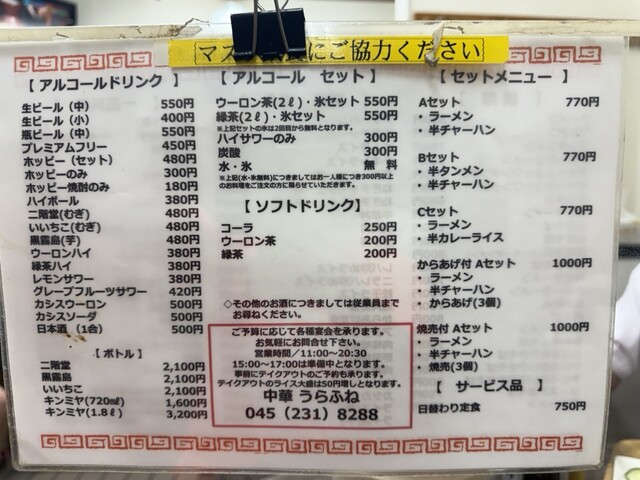 マス にご協力ください
【 アルコールドリンク 】
生ビール（中） 550円
生ビール（小） 400円
瓶ビール（中） 550円
プレミアムフリー 450円
ホッピー（セット） 480円
ホッピーのみ 300円
ホッピー焼酎のみ 180円
ハイボール 380円
二階堂（むぎ） 480円
いいちこ（むぎ） 480円
黒霧島（芋） 480円
ウーロンハイ 380円
緑茶ハイ 380円
レモンサワー 380円
グレープフルーツサワー 420円
カシスウーロン 500円
カシスソーダ 500円
日本酒（1合） 500円
【 ボトル 】
二階堂 2,100円
黒霧島 2,100円
いいちこ 2,100円
キンミヤ（720㎖） 1,600円
キンミヤ（1.8ℓ） 3,200円
【 アルコール セット 】
ウーロン茶（2ℓ）・氷セット 550円
緑茶（2ℓ）・氷セット 550円
※上記セットの氷は2回目から無料となります。
ハイサワーのみ 300円
炭酸 300円
水・氷 無 料
※上記（水・氷無料）につきましてはお一人様につき300円以上
のお料理をご注文の方に限らせていただきます。
【 ソフトドリンク】
コーラ 250円
ウーロン茶 200円
緑茶 200円
◇その他のお酒につきましては従業員まで
お尋ねください。
ご予算に応じて各種宴会を承ります。
お気軽にお問合せ下さい。
営業時間／11:00～20:30
15:00～17:00は準備中となります。
事前にテイクアウトのご予約も承ります。
テイクアウトのライス大盛は50円増しとなります。
中華 うらふね
045（231）8288
【 セットメニュー 】
Aセット 770円
・ラーメン
・半チャーハン
Bセット 770円
・半タンメン
・半チャーハン
Cセット 770円
・ラーメン
・半カレーライス
からあげ付 Aセット 1000円
・ラーメン
・半チャーハン
・からあげ(3個)
焼売付 Aセット 1000円
・ラーメン
・半チャーハン
・焼売(3個)
【 サービス品 】
日替わり定食 750円